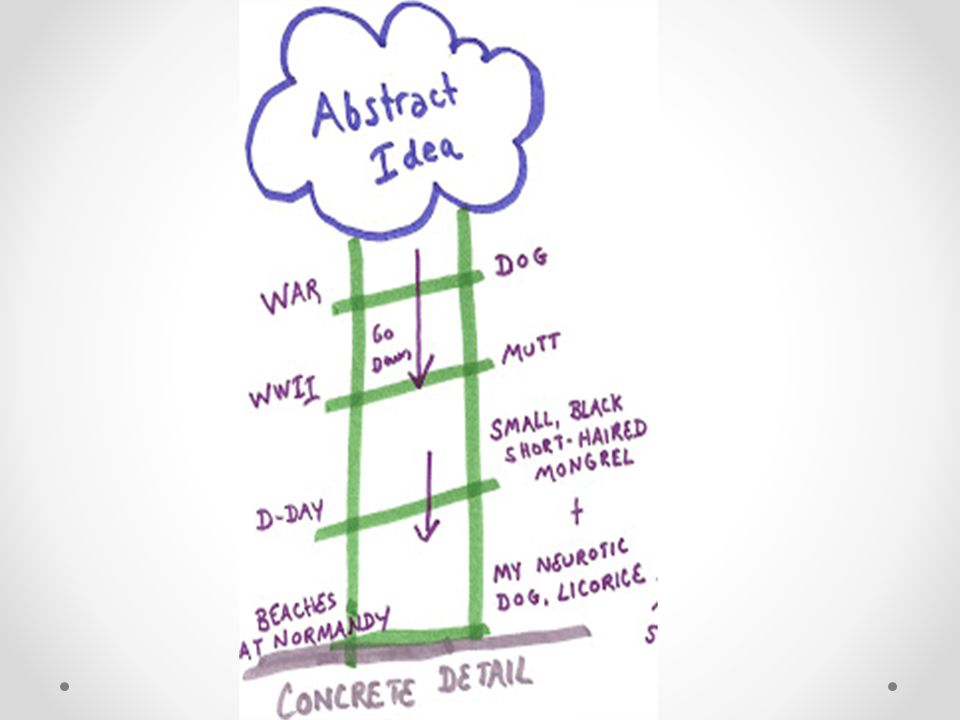 Abstract
Idea
WAR
DOG
Go
Down
WWII
MUTT
SMALL, BLACK
SHORT-HAIRED
MONGREL
D-DAY
+
MY NEUROTIC
DOG, LICORICE
BEACHES
AT NORMANDY
S
CONCRETE DETAIL